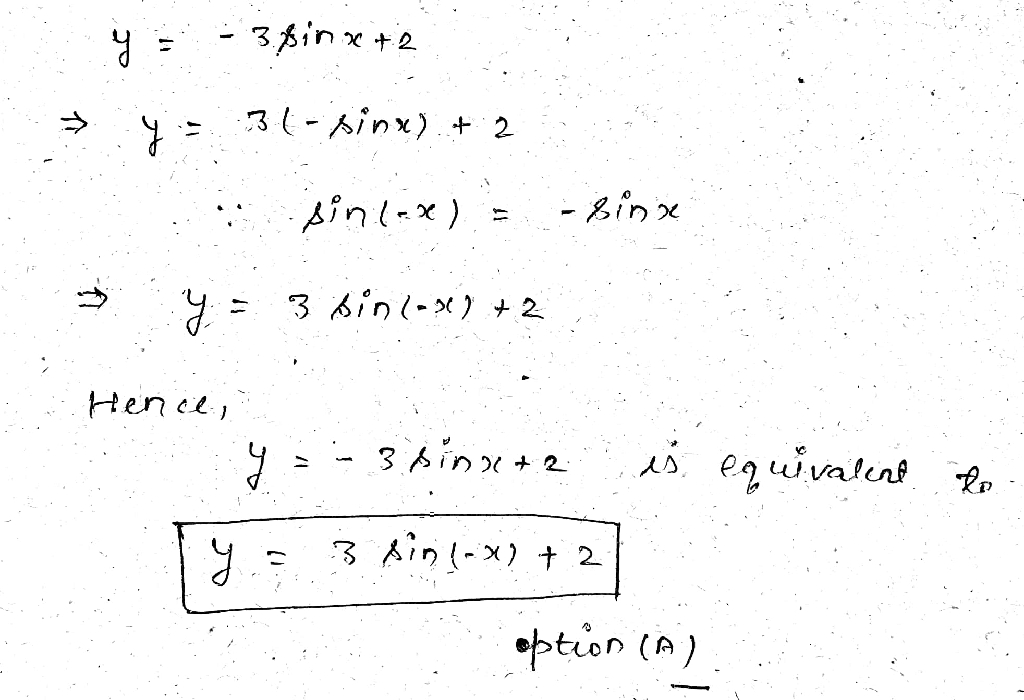 y = - 3 sin x + 2
⇒ y = 3(- sin x) + 2
∵ sin(-x) = - sin x
⇒ y = 3 sin(-x) + 2
Hence,
y = - 3 sin x + 2 is equivalent to
y = 3 sin(-x) + 2
option (A)